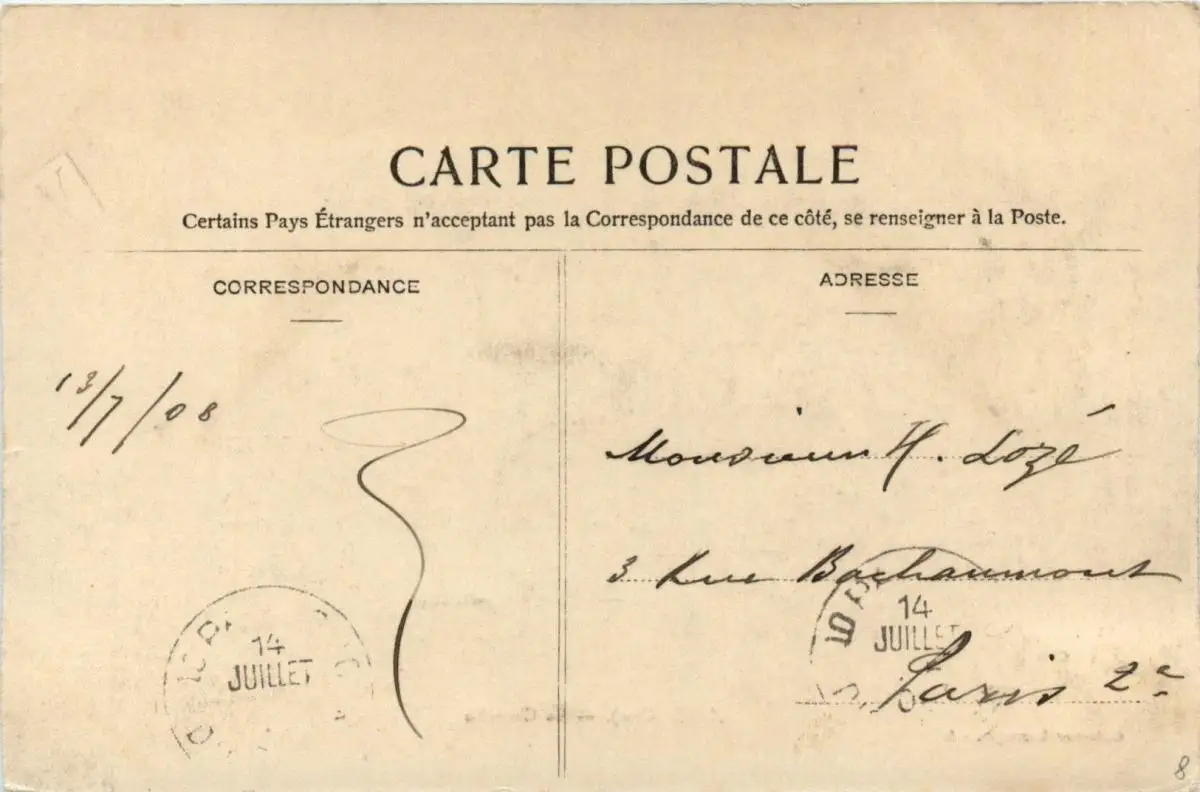 CARTE POSTALE
Certains Pays Étrangers n'acceptant pas la Correspondance de ce côté, se renseigner à la Poste.
CORRESPONDANCE
ADRESSE
13/7/08
Monsieur H. Lozé
3 Rue Bachaumont
Paris 2e
14
JUILLET
14
JUILLET
8